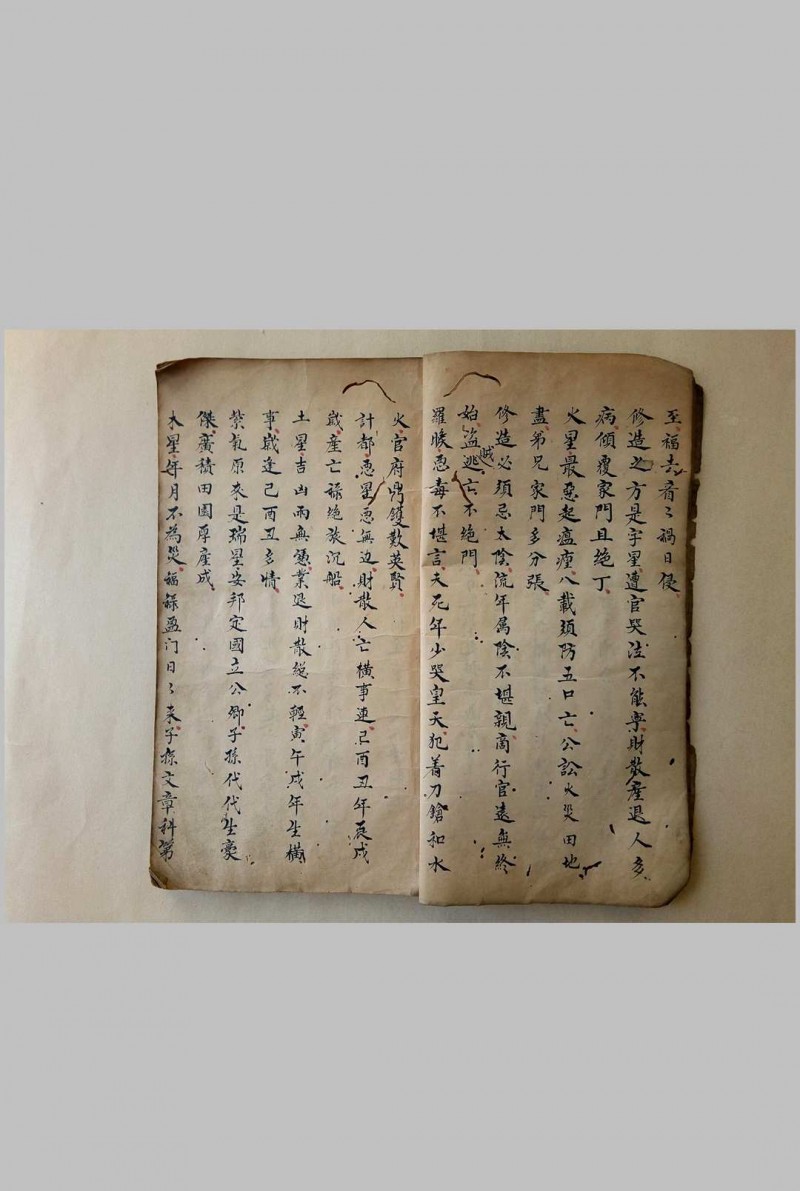 至福去看〻禍日侵
修造之方是孛星遭官哭泣不能寧財散產退人多
病傾覆家門且絶丁
火星最惡起瘟瘟八載須防五口亡公訟火災田地
盡弟兄家門多分張
修造必須忌太陰流年属陰不堪親商行官遠無終
始盗賊逃亡不绝門
羅睺惡毒不堪言夭死年少哭皇天犯着刀鎗扣水
火官府鼎鑊數英賢
計都惡星惡無边財散人亡橫事連己酉丑年辰戍
歳產亡祿绝旅沉船
土星吉山兩無憑業退財散総不輕寅午戍年生橫
事歳逢己酉丑多情
紫氣原来是瑞星安邦定國立公卿子孫代代生豪
傑廣積田園厚產成
木星年月不為災福祿盈门日〻来子孫文章科第